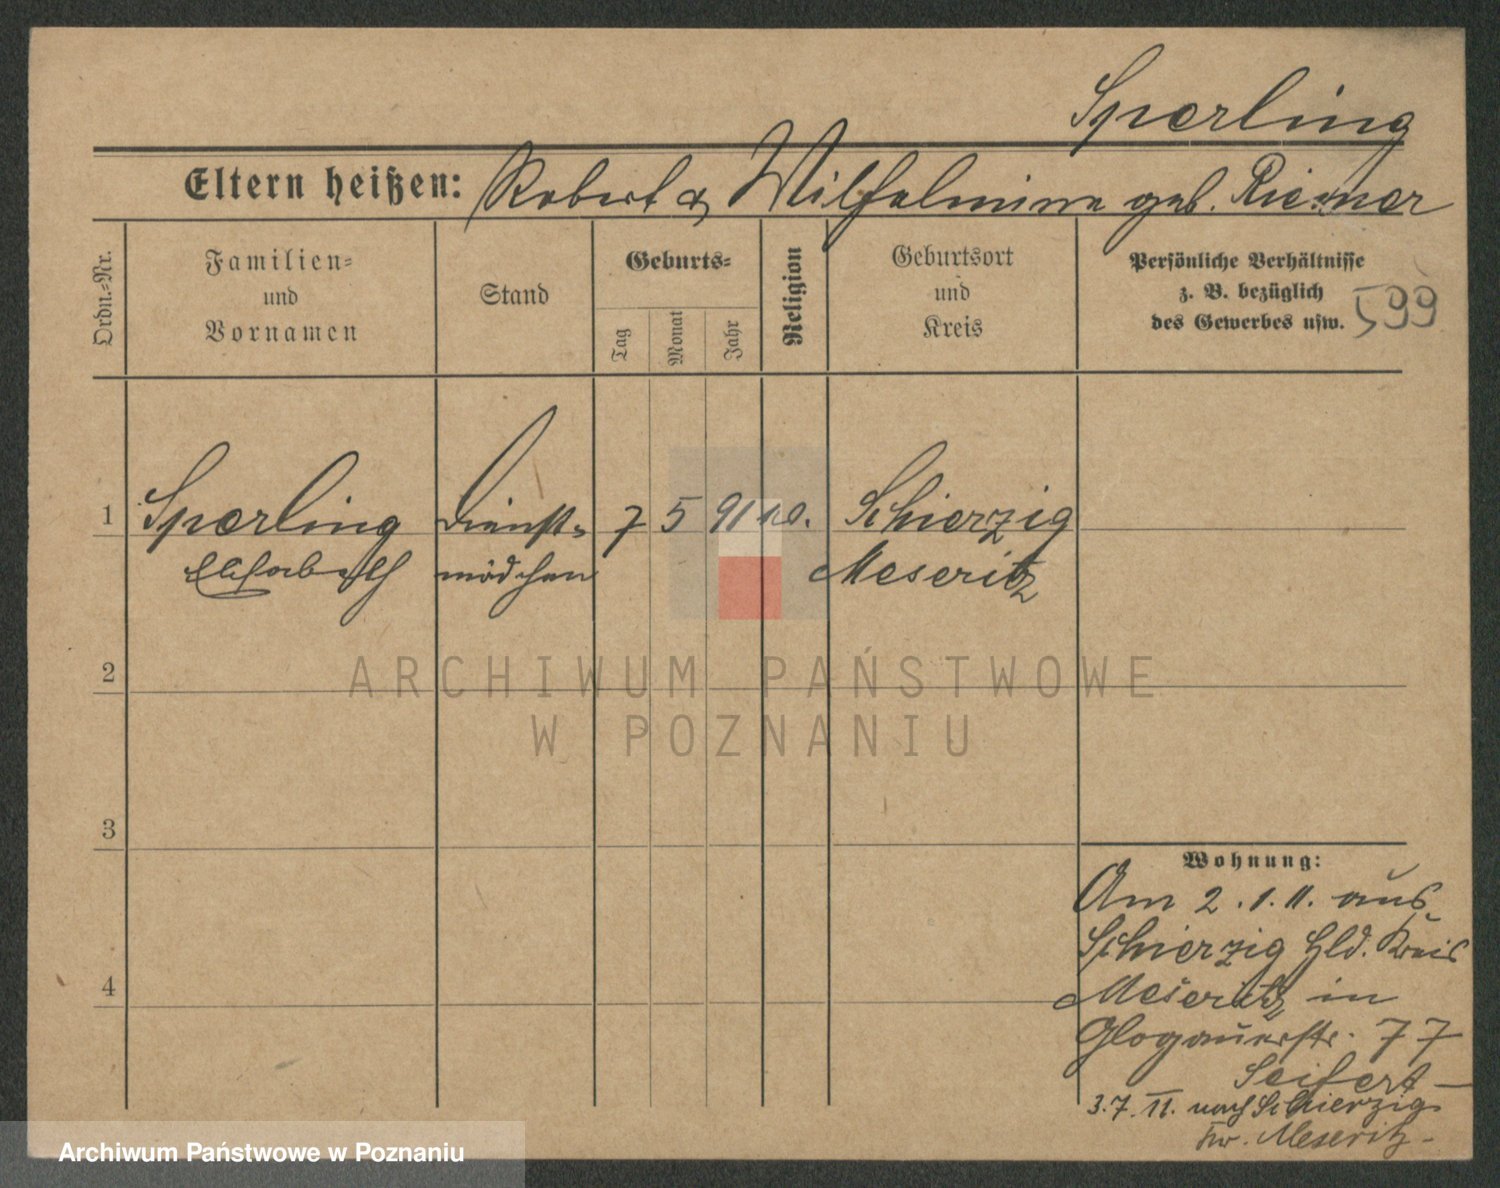 Sperling
Eltern heißen: Robert & Wilhelmine geb. Riemer
Ordn.-Nr.
Familien-
und
Vornamen
Stand
Geburts-
Tag
Monat
Jahr
Religion
Geburtsort
und
Kreis
Persönliche Verhältnisse
z. B. bezüglich
des Gewerbes usw.
599
1 Sperling Dienst- 7 5 91 Schierzig
Elisabeth mädchen Meseritz
2
3
4
Wohnung:
Am 2.1.11. aus
Schierzig Hld. Kreis
Meseritz in
Glogauerstr. 77
Seifert –
3.7.11. nach Schierzig
Kr. Meseritz –
ARCHIWUM PAŃSTWOWE
W POZNANIU
Archiwum Państwowe w Poznaniu